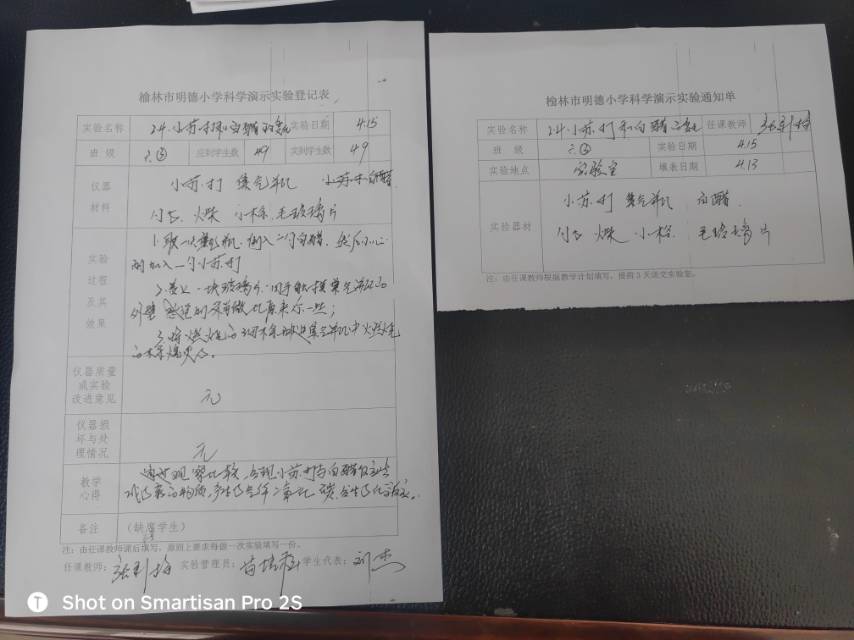 榆林市明德小学科学演示实验登记表
实验名称 24.小苏打和白醋的变化 实验日期 4.15
班级 六③ 应到学生数 49 实到学生数 49
仪器材料 小苏打 集气瓶 白醋
勺 火柴 小木条 毛玻璃片
实验过程及其效果 1.取一 集气瓶,倒入 勺白醋,然后小心
加入一勺小苏打
2.盖上一块玻璃片,用手触摸集气瓶的
外壁 感觉到 比原来 一些;
3.将燃烧的细木条 进集气瓶中火燃烧
的木条熄灭了。
仪器质量或实验改进意见 无
仪器损坏与处理情况 无
教学心得 通过观察比较,发现小苏打与白醋 产生
了新的物质,产生了气体二氧化碳,发生了化学反应。
备注 (缺席学生)
注:由任课教师课后填写,原则上要求每做一次实验填写一份。
任课教师: 实验管理员: 学生代表:刘杰
榆林市明德小学科学演示实验通知单
实验名称 24.小苏打和白醋的变化 任课教师
班级 六③ 实验日期 4.15
实验地点 实验室 填表日期 4.13
实验器材 小苏打 集气瓶 白醋
勺 火柴 小木条 毛玻璃片
注:由任课教师根据教学计划填写,提前3天送交实验室。
Shot on Smartisan Pro 2S